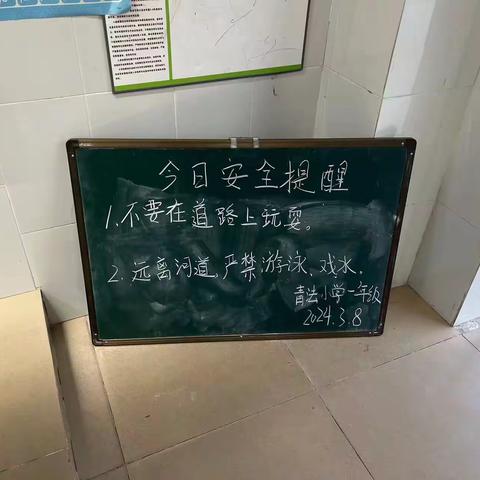 今日安全提醒
1.不要在道路上玩耍。
2.远离河道,严禁游泳、戏水.
小学一年级
2024.3.8